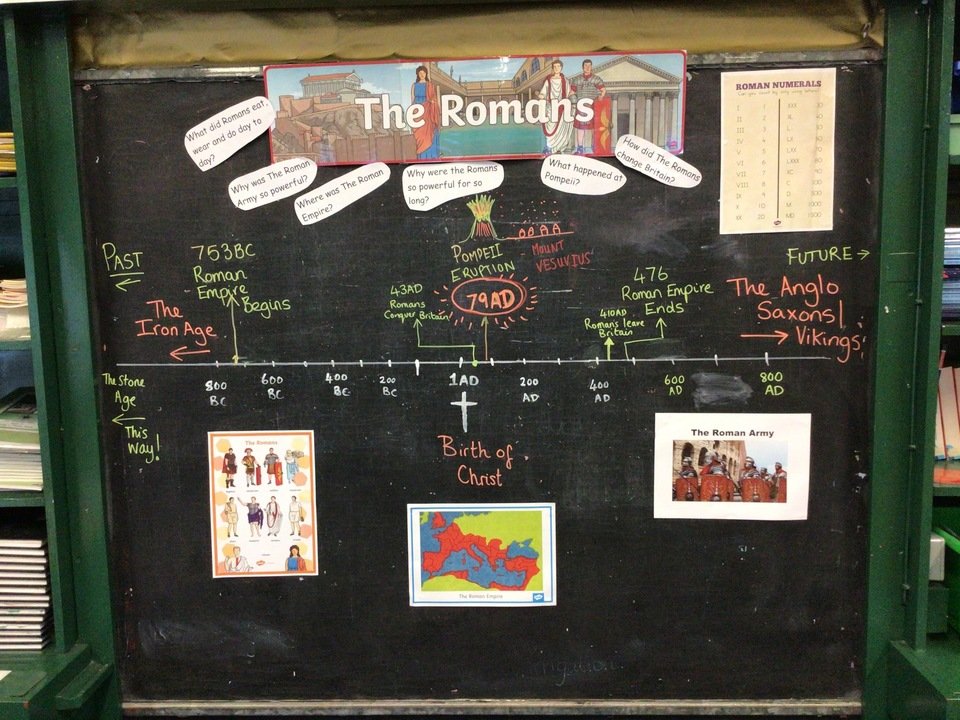 The Romans
What did Romans eat,
wear and do day to
day?
Why was The Roman
Army so powerful?
Where was The Roman
Empire?
Why were the Romans
so powerful for so
long?
What happened at
Pompeii?
How did The Romans
change Britain?
ROMAN NUMERALS
Can you count by only using letters?
I 1 XXX 30
II 2 XL 40
III 3 L 50
IV 4 LX 60
V 5 LXX 70
VI 6 LXXX 80
VII 7 XC 90
VIII 8 C 100
IX 9 D 500
X 10 M 1000
XX 20 MD 1500
PAST
753BC
Roman
Empire
Begins
The
Iron Age
43AD
Romans
Conquer Britain
POMPEII
ERUPTION
79AD
MOUNT
VESUVIUS
410AD
Romans leave
Britain
476
Roman Empire
Ends
FUTURE
The Anglo
Saxons/
Vikings
The Stone
Age
This
Way!
800
BC
600
BC
400
BC
200
BC
1AD
200
AD
400
AD
600
AD
800
AD
Birth of
Christ
The Romans
The Roman Empire
The Roman Army